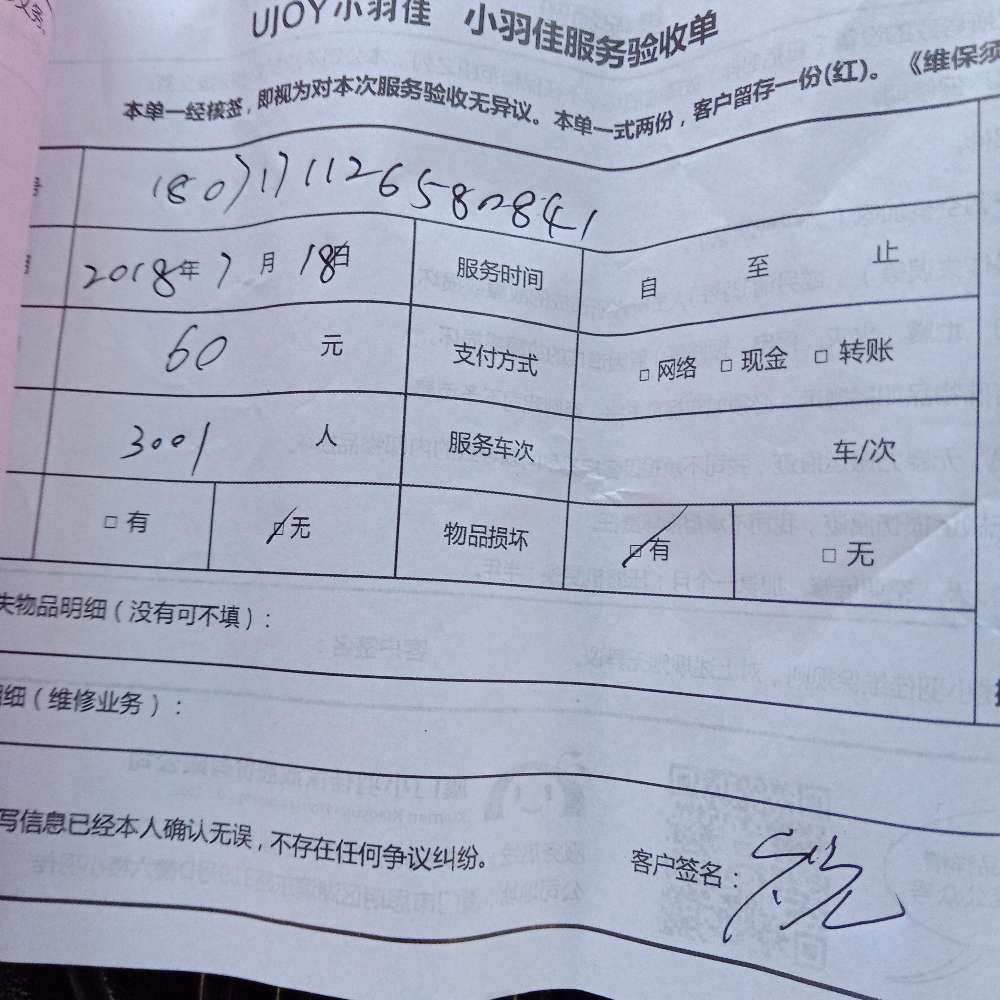 UJOY小羽佳 小羽佳服务验收单
本单一经核签，即视为对本次服务验收无异议。本单一式两份，客户留存一份(红)。《维保须
号 1807171126580841
2018年7月18日 服务时间 自 至 止
60 元 支付方式 □网络 □现金 □转账
3001 人 服务车次 车/次
□有 □无 物品损坏 □有 □无
失物品明细（没有可不填）：
明细（维修业务）：
写信息已经本人确认无误，不存在任何争议纠纷。 客户签名：